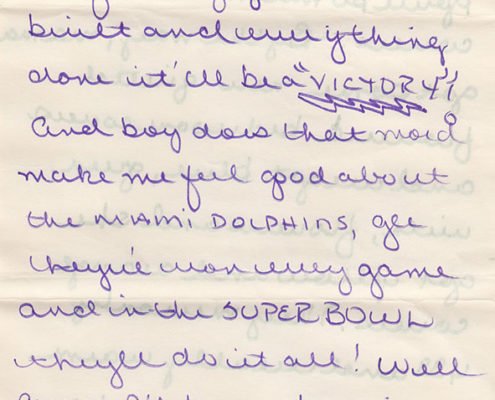 built and everything
done it'll be a "VICTORY"!
And boy does that word
make me feel good about
the MIAMI DOLPHINS, gee
they've won every game
and in the SUPER BOWL
they'll do it all! Well